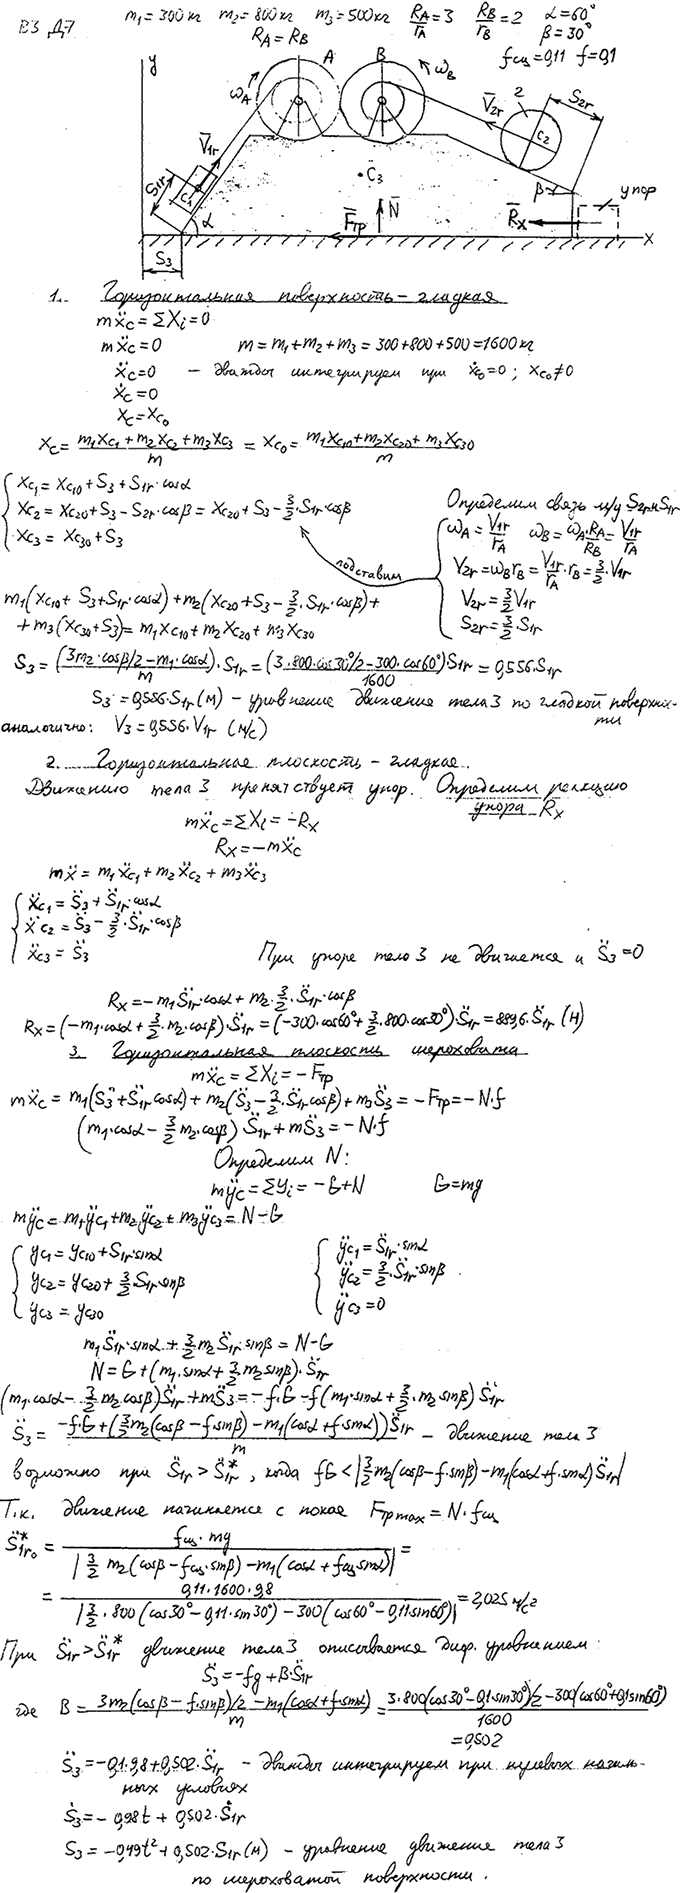 В3 Д-7 m₁=300кг m₂=800кг m₃=500кг R_A/r_A=3 R_B/r_B=2 α=60°
R_A=R_B β=30°
f_сц=0,11 f=0,1
y A B
ω_A ω_B V̄₂r 2 S₂r
V̄₁r C₂
S₁r C₁ ·C̄₃ β упор
α F̄тр N̄ R̄x x
S₃
1. Горизонтальная поверхность – гладкая
mẍc=ΣXi=0
mẍc=0 m=m₁+m₂+m₃=300+800+500=1600кг
ẍc=0 – дважды интегрируем при ẋc₀=0; xc₀≠0
ẋc=0
xc=xc₀
xc=(m₁xc₁+m₂xc₂+m₃xc₃)/m=xc₀=(m₁xc₁₀+m₂xc₂₀+m₃xc₃₀)/m
xc₁=xc₁₀+S₃+S₁r·cosα
xc₂=xc₂₀+S₃-S₂r·cosβ=xc₂₀+S₃-3/2·S₁r·cosβ
xc₃=xc₃₀+S₃
Определим связь м/у S₂r и S₁r
ω_A=V₁r/r_A ω_B=ω_A·R_A/R_B=V₁r/r_A
V₂r=ω_B r_B=V₁r/r_A·r_B=3/2·V₁r
V₂r=3/2V₁r
S₂r=3/2·S₁r
подставим
m₁(xc₁₀+S₃+S₁r·cosα)+m₂(xc₂₀+S₃-3/2·S₁r·cosβ)+
+m₃(xc₃₀+S₃)=m₁xc₁₀+m₂xc₂₀+m₃xc₃₀
S₃=(3m₂·cosβ/2-m₁·cosα)/m·S₁r=(3·800·cos30°/2-300·cos60°)/1600 S₁r=0,556·S₁r
S₃=0,556·S₁r(м) – уровнение движение тела 3 по гладкой поверхнос-
ти
аналогично: V₃=0,556·V₁r (м/с)
2. Горизонтальное плоскость – гладкая.
Движению тела 3 препятствует упор. Определим реакцию
упора Rx
mẍc=ΣXi=-Rx
Rx=-mẍc
mẍ=m₁ẍc₁+m₂ẍc₂+m₃ẍc₃
ẍc₁=S̈₃+S̈₁r·cosα
ẍc₂=S̈₃-3/2·S̈₁r·cosβ
ẍc₃=S̈₃ При упоре тело 3 не двигается и S̈₃=0
Rx=-m₁S̈₁r·cosα+m₂·3/2·S̈₁r·cosβ
Rx=(-m₁·cosα+3/2·m₂·cosβ)·S̈₁r=(-300·cos60°+3/2·800·cos30°)·S̈₁r=889,6·S̈₁r (Н)
3. Горизонтальная плоскость шероховата
mẍc=ΣXi=-Fтр
mẍc=m₁(S̈₃+S̈₁r cosα)+m₂(S̈₃-3/2·S̈₁r cosβ)+m₃S̈₃=-Fтр=-N·f
(m₁·cosα-3/2m₂·cosβ)S̈₁r+mS̈₃=-N·f
Определим N:
mÿc=Σyi=-G+N G=mg
mÿc=m₁ÿc₁+m₂ÿc₂+m₃ÿc₃=N-G
yc₁=yc₁₀+S₁r·sinα ÿc₁=S̈₁r·sinα
yc₂=yc₂₀+3/2·S₁r·sinβ ÿc₂=3/2·S̈₁r·sinβ
yc₃=yc₃₀ ÿc₃=0
m₁S̈₁r·sinα+3/2m₂S̈₁r·sinβ=N-G
N=G+(m₁·sinα+3/2m₂sinβ)·S̈₁r
(m₁·cosα-3/2m₂cosβ)S̈₁r+mS̈₃=-f·G-f(m₁·sinα+3/2·m₂sinβ)S̈₁r
S̈₃=(-f·G+(3/2m₂(cosβ-f·sinβ)-m₁(cosα+f·sinα))S̈₁r)/m – движение тела 3
возможно при S̈₁r>S̈₁r*, когда fG<|3/2m₂(cosβ-f·sinβ)-m₁(cosα+f·sinα)S̈₁r|
Т.к. движение начинается с покоя Fтр max=N·fсц
S̈₁r₀*=fсц·mg/|3/2m₂(cosβ-fсц·sinβ)-m₁(cosα+fсц sinα)|=
=0,11·1600·9,8/|3/2·800(cos30°-0,11·sin30°)-300(cos60°-0,11sin60°)|=2,025м/с²
При S̈₁r>S̈₁r* движение тела 3 описывается диф. уровнением:
S̈₃=-fg+B·S̈₁r
где B=(3m₂(cosβ-f·sinβ)/2-m₁(cosα+f·sinα))/m=(3·800(cos30°-0,1·sin30°)/2-300(cos60°+0,1sin60°))/1600
=0,502
S̈₃=-0,1·9,8+0,502·S̈₁r – дважды интегрируем при нулевых началь-
ных условиях
Ṡ₃=-0,98t+0,502·Ṡ₁r
S₃=-0,49t²+0,502·S₁r(м) – уровнение движение тела 3
по шероховатой поверхности.